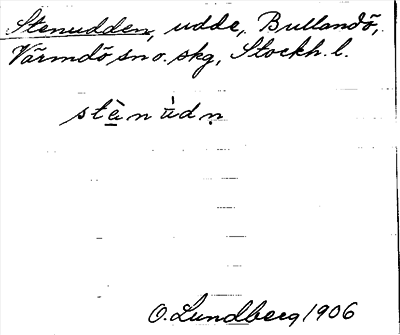 Stenudden, udde, Bullandö,
Värmdö sn o. skg, Stockh. l.
stè̱n ùdṇ
O. Lundberg 1906